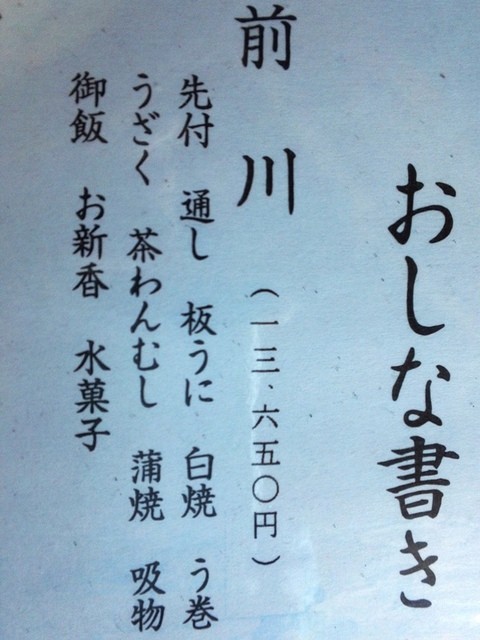 おしな書き
前川 (一三.六五〇円)
先付 通し 板うに 白焼 う巻
うざく 茶わんむし 蒲焼 吸物
御飯 お新香 水菓子